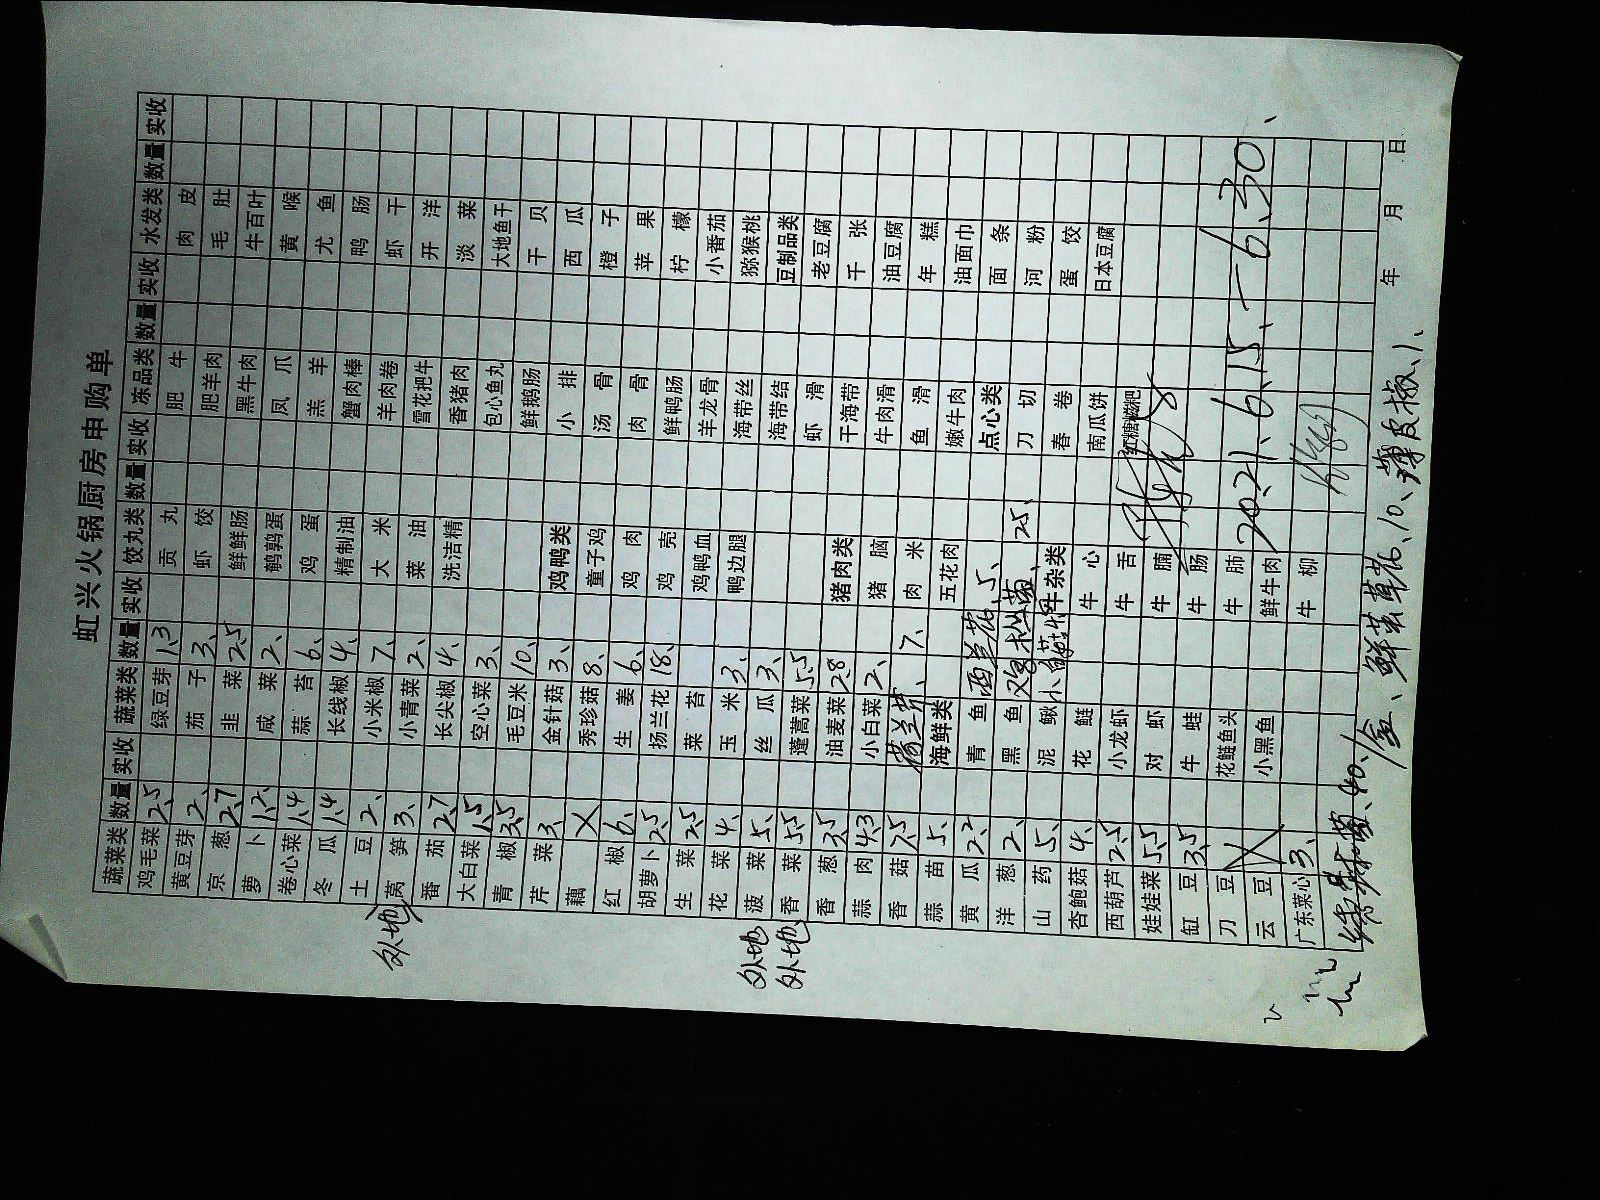 虹兴火锅厨房申购单
蔬菜类 数量 实收 蔬菜类 数量 实收 饺丸类 数量 实收 冻品类 数量 实收 水发类 数量 实收
鸡毛菜 2.5 绿豆芽 1.3 贡丸 肥牛 肉皮
黄豆芽 2、 茄子 3、 虾饺 肥羊肉 毛肚
京葱 2.7 韭菜 2.5 鲜鲜肠 黑牛肉 牛百叶
萝卜 1.2、 咸菜 2、 鹌鹑蛋 凤爪 黄喉
卷心菜 1.4 蒜苔 6、 鸡蛋 羔羊 尤鱼
冬瓜 1.4 长线椒 4、 精制油 蟹肉棒 鸭肠
土豆 2、 小米椒 7、 大米 羊肉卷 虾干
外地 莴笋 3、 小青菜 2、 菜油 雪花把牛 开洋
番茄 2.7 长尖椒 4、 洗洁精 香猪肉 淡菜
大白菜 1.5 空心菜 3、 包心鱼丸 大地鱼干
青椒 3.5 毛豆米 10、 鲜鹅肠 干贝
芹菜 3、 金针菇 3、 鸡鸭类 小排 西瓜
藕 X 秀珍菇 8、 童子鸡 汤骨 橙子
红椒 6、 生姜 6、 鸡肉 肉骨 苹果
胡萝卜 2.5 扬兰花 18、 鸡壳 鲜鸭肠 柠檬
生菜 2.5 菜苔 鸡鸭血 羊龙骨 小番茄
花菜 4、 玉米 3、 鸭边腿 海带丝 猕猴桃
外地 菠菜 5、 丝瓜 3、 海带结 豆制品类
外地 香菜 5.5 蓬蒿菜 5.5 虾滑 老豆腐
香葱 3.5 油麦菜 2.8 猪肉类 干海带 千张
蒜肉 4.3 小白菜 2、 猪脑 牛肉滑 油豆腐
香菇 7.5 7、 肉米 鱼滑 年糕
蒜苗 5、 海鲜类 五花肉 嫩牛肉 油面巾
黄瓜 2.2、 青鱼 西兰苔、5、 点心类 面条
洋葱 2、 黑鱼 鸡枞菌、25、 刀切 河粉
山药 5、 泥鳅 牛杂类 春卷 蛋饺
杏鲍菇 4、 花鲢 牛心 南瓜饼 日本豆腐
西胡芦 2.5 小龙虾 牛舌 红糖糍粑
娃娃菜 5.5 对虾 牛腩
缸豆 3.5 牛蛙 牛肠
刀豆 花鲢鱼头 牛肺
云豆 小黑鱼 鲜牛肉 2021、6、15、—6、30、
广东菜心 3、 牛柳
年 月 日
40、/盒、鲜草菇、10、薄皮椒、1、